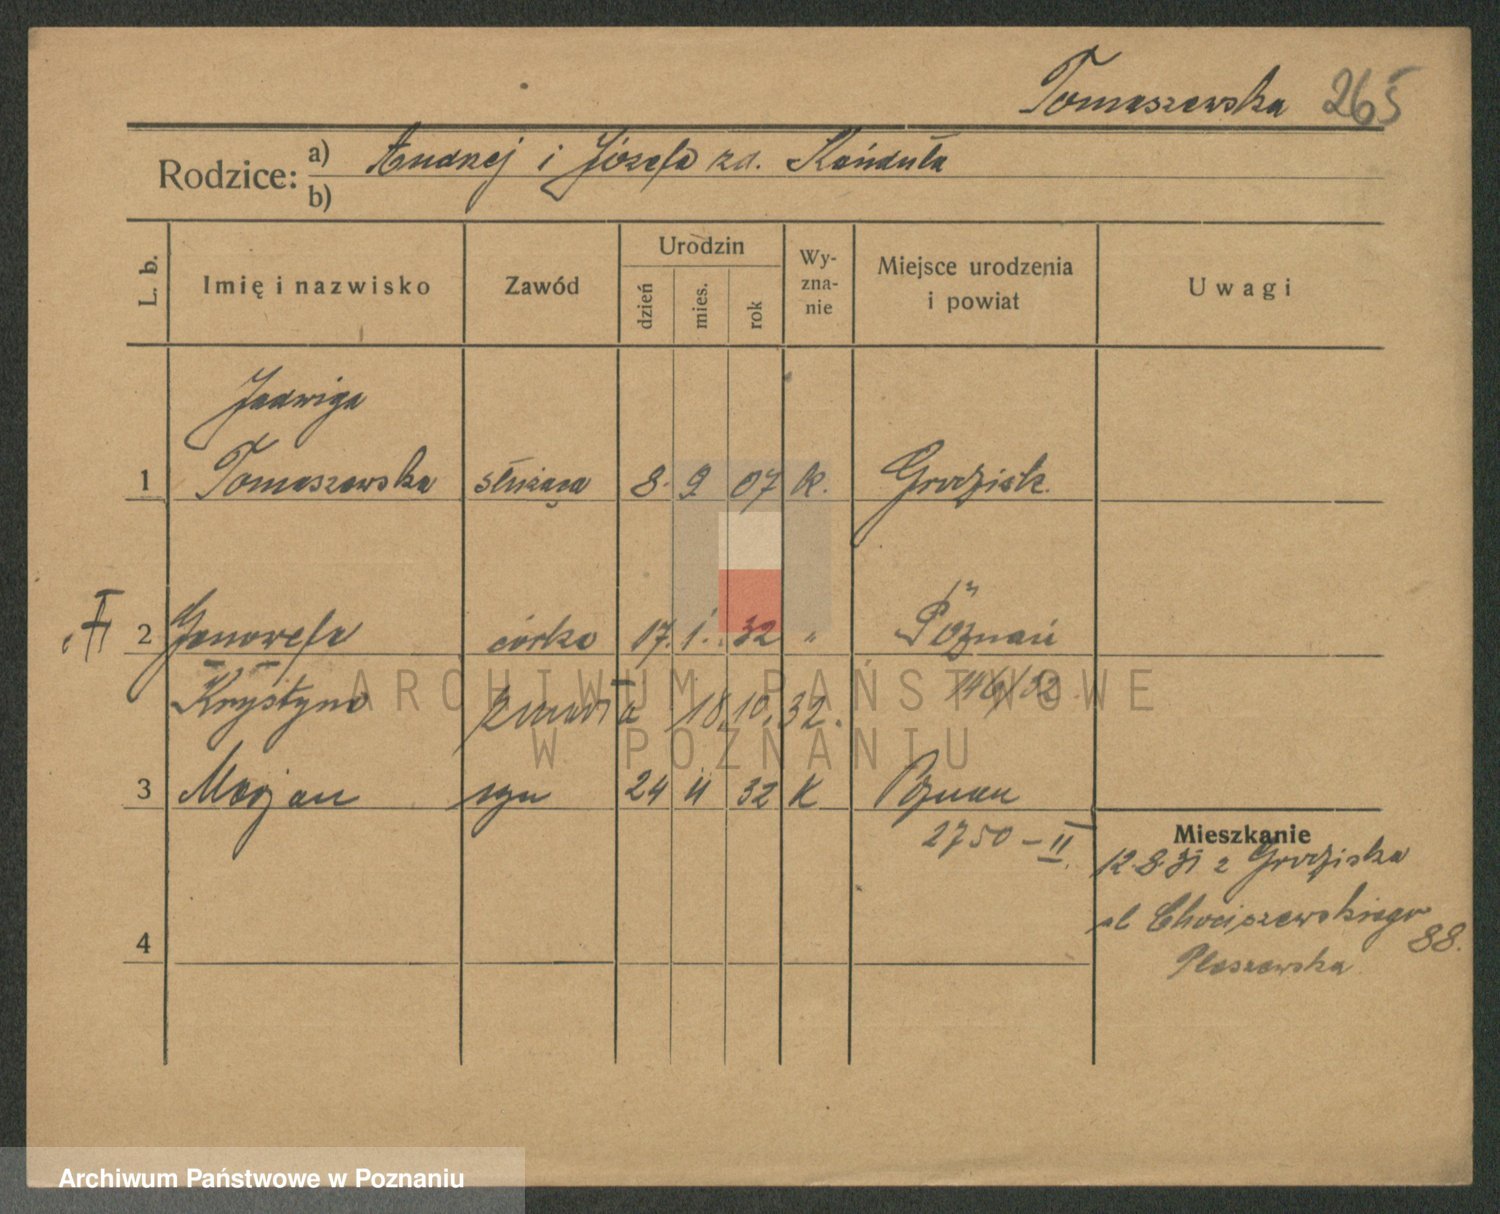 Tomaszewska 265
Rodzice: a) Andrzej i Józefa zd. Kańduła
b)
L. b. Imię i nazwisko Zawód Urodzin dzień mies. rok Wy-zna-nie Miejsce urodzenia i powiat Uwagi
Jadwiga
1 Tomaszewska służąca 8. 9 07 k. Grodzisk.
2 Genowefa córka 17. 1. 32 " Poznań
Krystyna zmarła 18.10.32. 146/32
ARCHIWUM PAŃSTWOWE
W POZNANIU
3 Marjan syn 24 11 32 K Poznań
2750-II
Mieszkanie
12.8.31 z Grodziska
ul Chociszewskiego
88.
Pleszewska
4
Archiwum Państwowe w Poznaniu